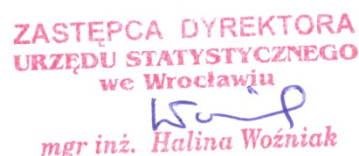 ZASTĘPCA DYREKTORA
URZĘDU STATYSTYCZNEGO
we Wrocławiu
mgr inż. Halina Woźniak